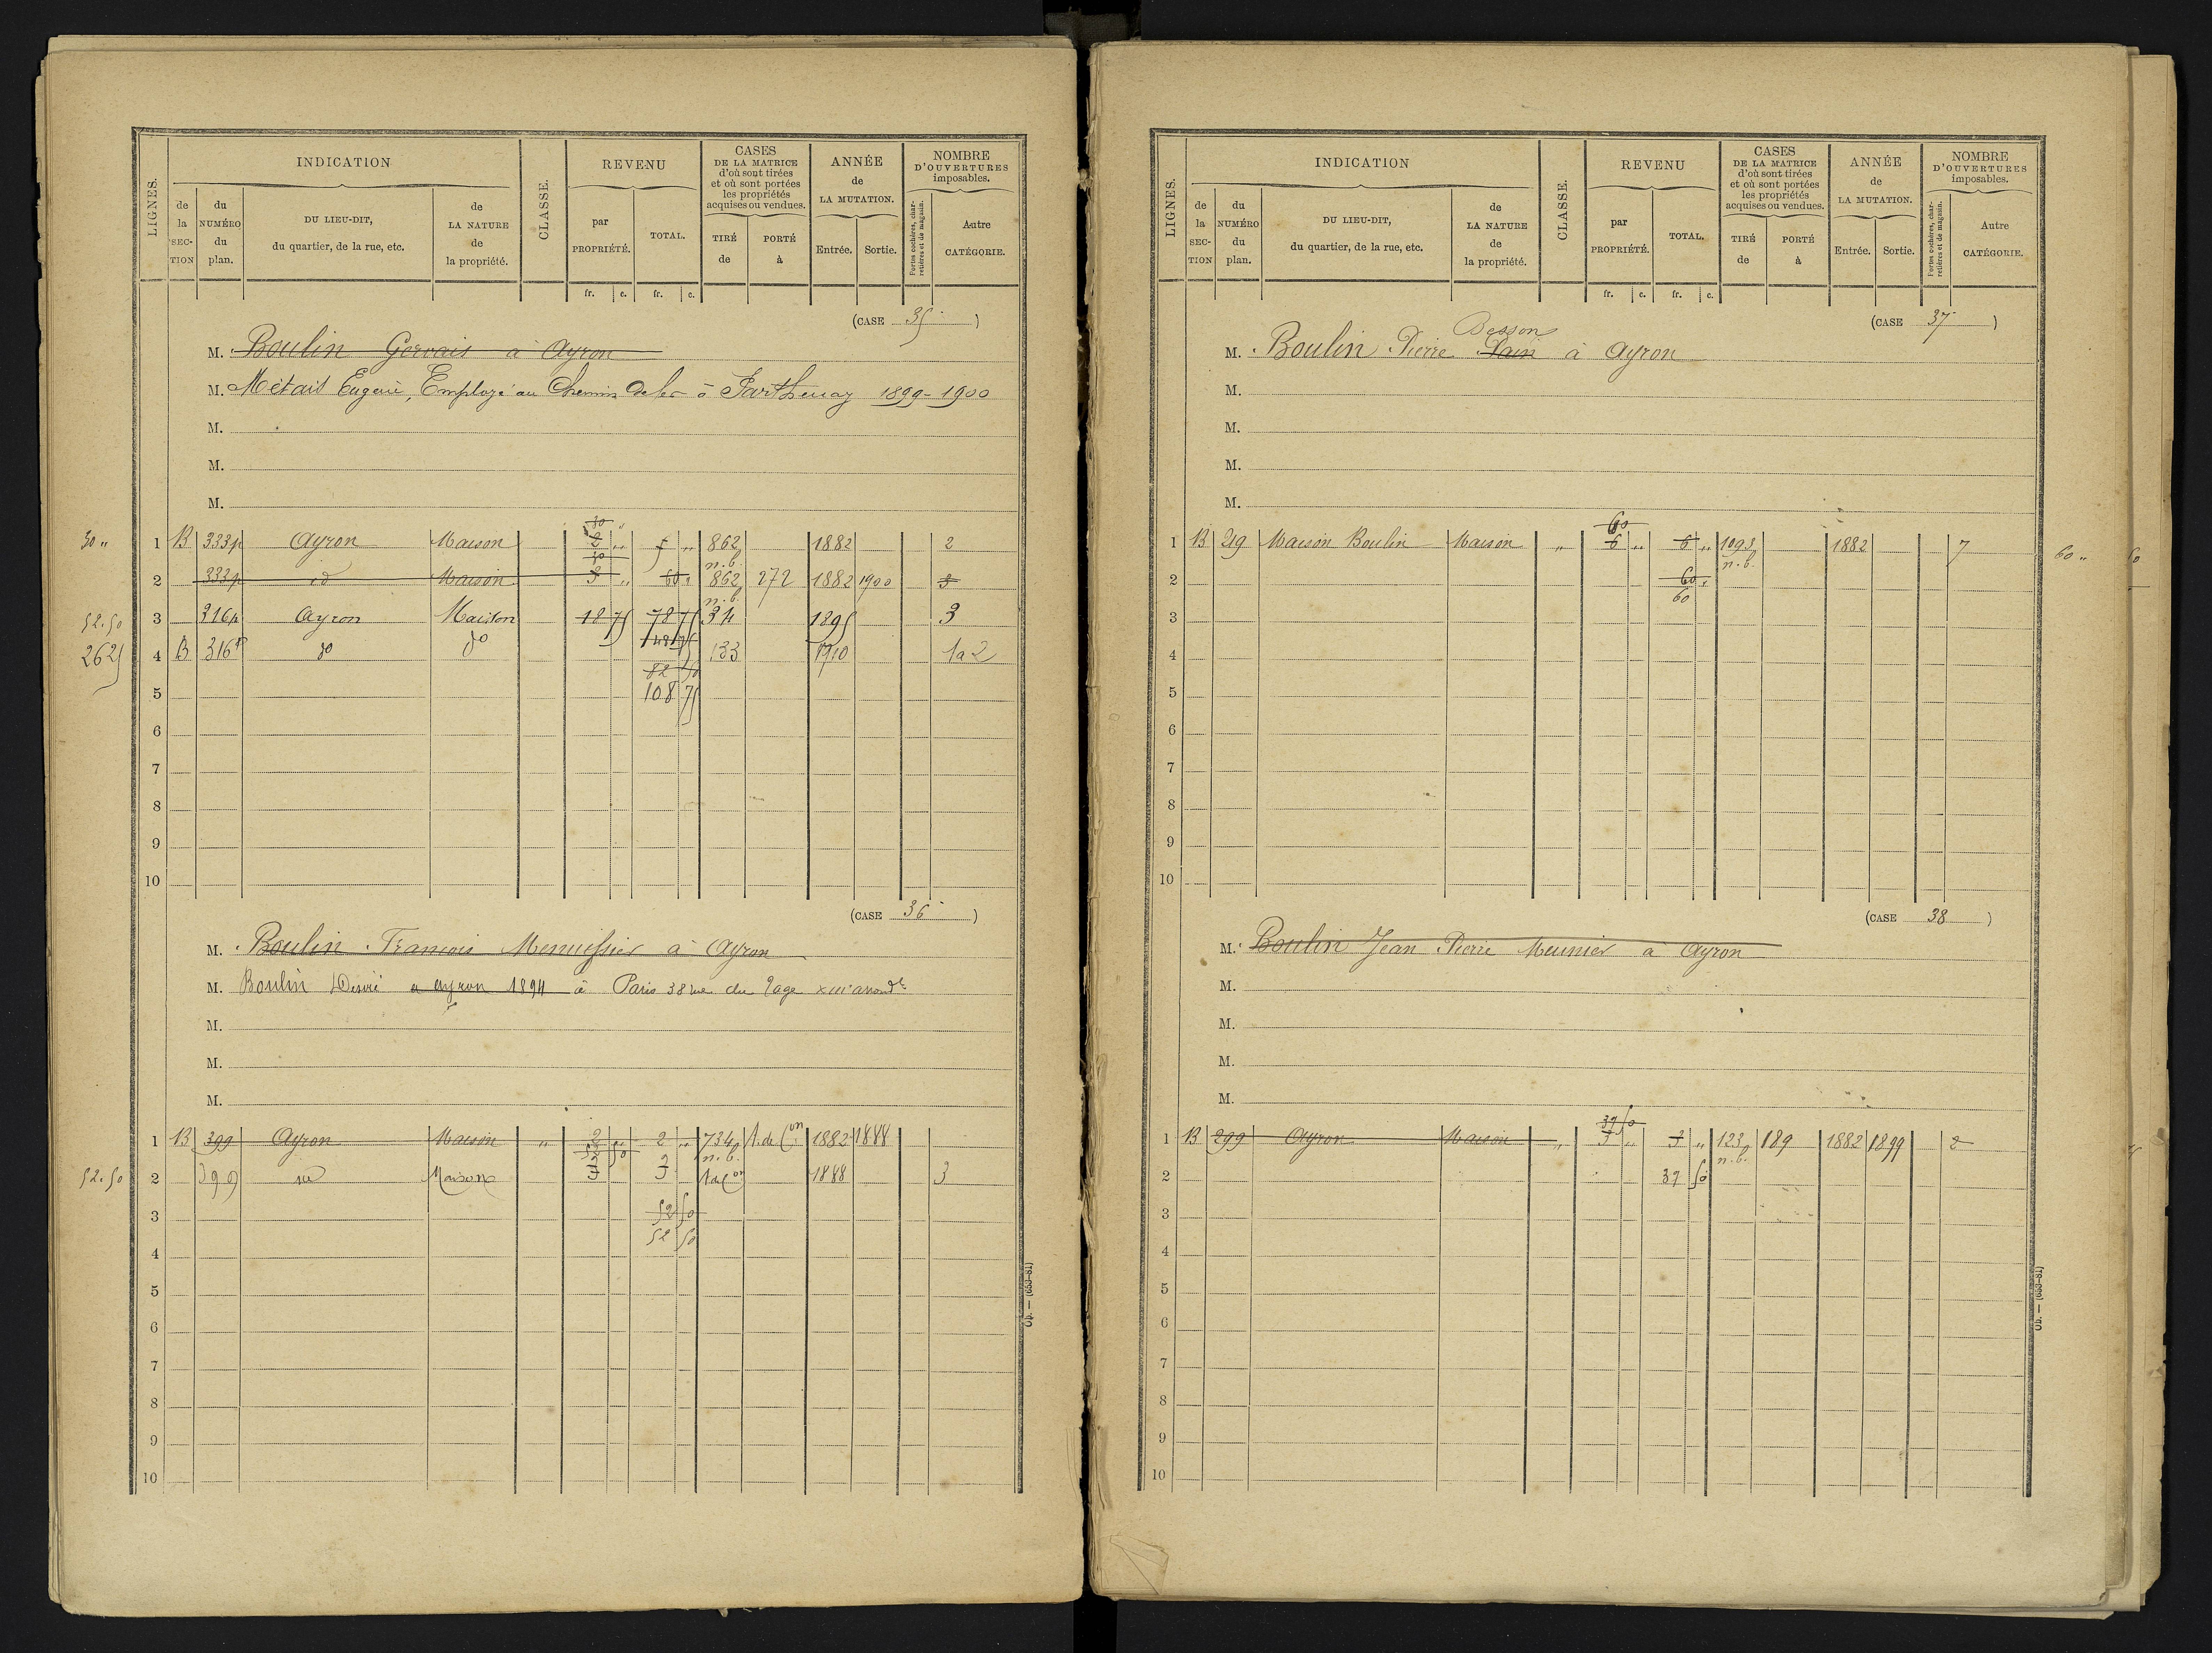 LIGNES. INDICATION CLASSE. REVENU CASES DE LA MATRICE d'où sont tirées et où sont portées les propriétés acquises ou vendues. ANNÉE de LA MUTATION. NOMBRE D'OUVERTURES imposables.
de la SECTION du NUMÉRO du plan. DU LIEU-DIT, du quartier, de la rue, etc. de LA NATURE de la propriété. par PROPRIÉTÉ. TOTAL. TIRÉ de PORTÉ à Entrée. Sortie. Portes cochères, charretières et de magasin. Autre CATÉGORIE.
fr. c. fr. c.
(CASE 35)
M. Boulin Gervais à Ayron
M. Métais Eugène, Employé au Chemin de fer à Parthenay 1899-1900
M.
M.
M.
30 "
30 "
1 B 333p Ayron Maison 2 " 5 " 862 1882 2
30 n.b.
2 333p id Maison 3 " 60 " 862 272 1882 1900
n.b.
52.50 3 316p Ayron Maison 18 75 78 75 34 1895 3
26 25 4 B 316p do do 133 1910 1 a 2
82 50
5 108 75
6
7
8
9
10
(CASE 36)
M. Boulin François Menuissier à Ayron
M. Boulin Désiré a ayron 1894 à Paris 38 rue du XIII arrondt
M.
M.
M.
1 B 399 Ayron Maison " 2 " 2 " 734 A. de Con 1882 1888
52 50 n.b.
52.50 2 399 id Maison 3 3 A de Con 1888 3
3 52 50
52 50
4
5
6
7
8
9
10
Ob. — (653-81)
LIGNES. INDICATION CLASSE. REVENU CASES DE LA MATRICE d'où sont tirées et où sont portées les propriétés acquises ou vendues. ANNÉE de LA MUTATION. NOMBRE D'OUVERTURES imposables.
de la SECTION du NUMÉRO du plan. DU LIEU-DIT, du quartier, de la rue, etc. de LA NATURE de la propriété. par PROPRIÉTÉ. TOTAL. TIRÉ de PORTÉ à Entrée. Sortie. Portes cochères, charretières et de magasin. Autre CATÉGORIE.
fr. c. fr. c.
(CASE 37)
Besson
M. Boulin Pierre Pain à Ayron
M.
M.
M.
M.
60
1 B 219 Maison Boulin Maison " 6 " 6 " 1093 1882 7 60 " 60
n.b.
2 60 "
60
3
4
5
6
7
8
9
10
(CASE 38)
M. Boulin Jean Pierre Meunier à Ayron
M.
M.
M.
M.
37 50
1 B 299 Ayron Maison " 3 " 3 " 123 189 1882 1899 2
n.b.
2 37 50
3
4
5
6
7
8
9
10
Ob. — (653-81)